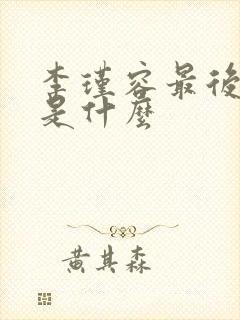 李瑾容最後
是什麼
黃其森